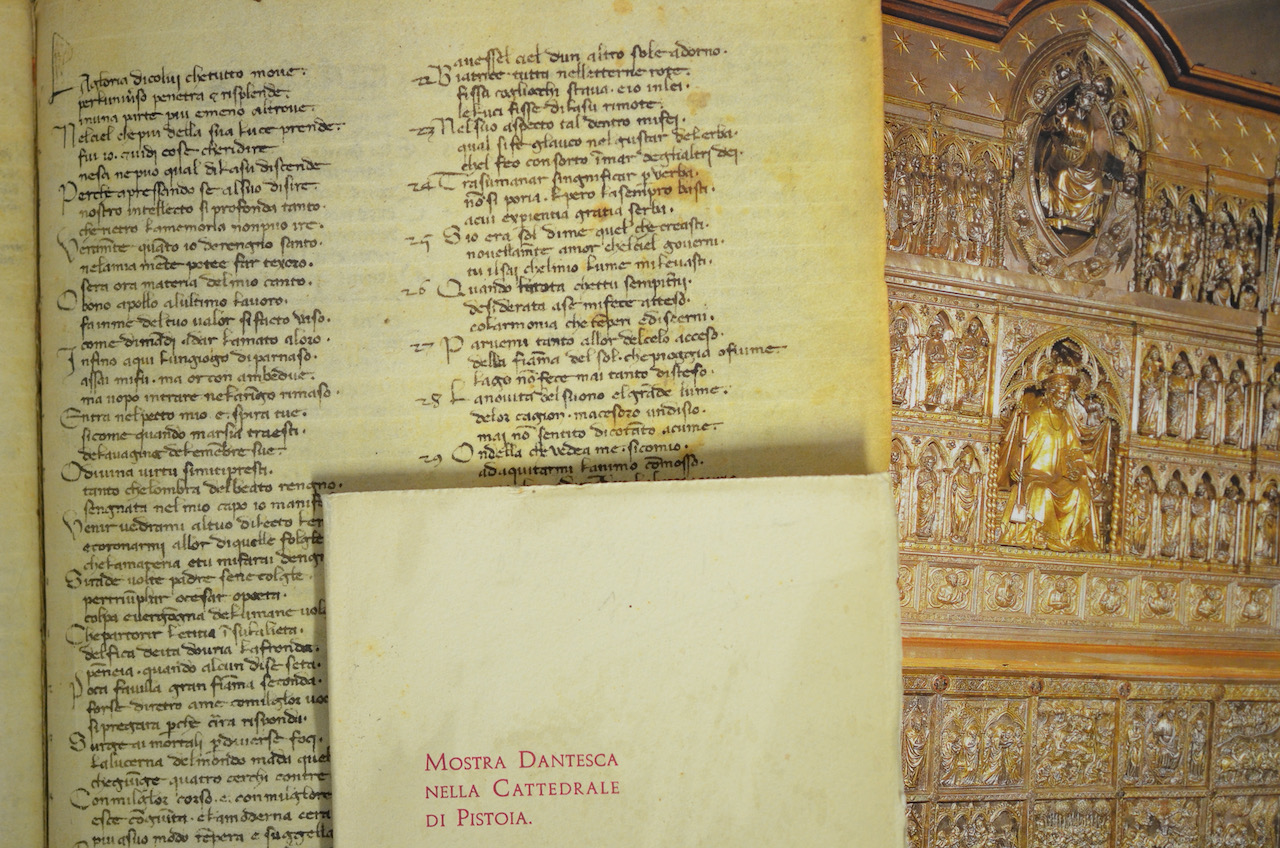 La gloria di colui che tutto move.
per luniverso penetra ⁊ risplende.
in una parte piu e meno altrove.
Nel ciel che piu della sua luce prende.
fui io. ⁊ vidi cose che ridire
ne sa ne puo qual di lasu discende
Perche apressando se al suo disire.
nostro intelletto si profonda tanto.
che retro la memoria non puo ire.
Veramēte quāto io de regnio santo.
nela mia mēte potee far texoro.
sera ora materia del mio canto.
O bono apollo alultimo lavoro.
famme del tuo valor si facto vaso.
come dimādi. adar lamato aloro.
Infino aqui lun giogo di parnaso.
assai mi fu. ma or con ambedue.
ma vopo intrare nel arīgo rimaso.
Entra nel petto mio e. spira tue.
sicome quando marsia traesti.
dela vagina dele mēbre sue.
O divina virtu si mi ti presti.
tanto che lombra del beato rengno.
sengnata nel mio capo io manife
Venir vedrami al tuo dilecto
e coronarmi allor di quelle foglie
che la materia e tu mi farai dengn
Sirade volte padre sene coglie
per triūphar o cesar o poeta.
colpa e vergōgna dele umane vol
Che partorir letitia ī su la lieta.
delfica deita dovria la fronda.
pēneia. quando alcun di se seta.
Poca favilla gran fiāma seconda.
forse diretro ame con miglor voc
si pregara pche cirra risponda.
Surge ai mortali p diverse foci.
la lucerna del mondo ma da quel
che giūge quatro cerchi con tre
Con miglor corso. e. con miglore
esce cōgiūta. e la mōdana cera
piu asuo modo tēpera e suggella
avessel ciel dun altro sole adorno.
22 Biatrice tutta nelletterne rote.
fissa cogliochi stava. e io in lei
le luci fisse di lasu rimote.
23 Nel suo aspecto tal dentro mi fei.
qual si fe glauco nel gustar de lerba.
chel feo consorto ī mar deglialtri dei.
24 Trasumanar singnificar p verba.
nō si poria. pero lasempro basti.
acui expientia gratia serba.
25 Sio era sol di me quel che creasti.
novellamēte amor chel ciel governi.
tu il sai chel mio lume mi levasti.
26 Quando la rota che ttu sempitrni.
desiderata ase mi fece atteso.
colarmonia che tēperi e discerni.
27 Parvemi tanto allor del celo acceso.
della fiāma del sol. che pioggia o fiume.
lago nō fece mai tanto disteso.
28 La novita del suono el grāde lume.
de lor cagion. macesoro un disio.
mai nō sentito di cotāto acume.
29 Ondella che vedea me. sicomio.
ad aquitarmi lanimo cōmosso.
MOSTRA DANTESCA
NELLA CATTEDRALE
DI PISTOIA.